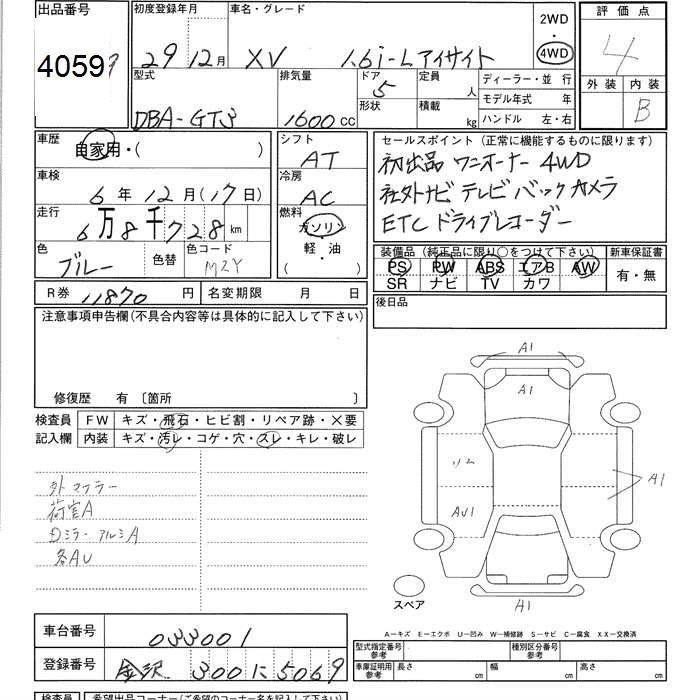 出品番号 初度登録年月 車名・グレード 2WD 評価点
4059 29 12月 XV 1.6i-L アイサイト 4WD 4
型式 排気量 ドア 定員 ディーラー・並行 外装 内装
DBA-GT3 1600 cc 5 人 モデル年式 年 B
形状 積載 kg ハンドル 左・右
車歴 自家用・( ) シフト AT セールスポイント (正常に機能するものに限ります)
初出品 ワンオーナー 4WD
車検 6年 12月 (17日) 冷房 AC 社外ナビ テレビ バックカメラ
走行 6万8千728 km 燃料 ガソリン ETC ドライブレコーダー
色 ブルー 色替 色コード M2Y 軽・油 ( )
装備品 (純正品に限り○をつけて下さい) 新車保証書
PS PW ABS エアB AW 有・無
SR ナビ TV カワ
R券 11870 円 名変期限 月 日 後日品
注意事項申告欄(不具合内容等は具体的に記入して下さい)
修復歴 有 〔箇所 〕
検査員 FW キズ・飛石・ヒビ割・リペア跡・X要
記入欄 内装 キズ・汚レ・コゲ・穴・スレ・キレ・破レ
外マフラー
荷室A
Dミラー アルミA
各AU
A1
A1
ソム
A1
AU1
スペア A1
A—キズ E—エクボ U—凹み W—補修跡 S—サビ C—腐食 XX—交換済
車台番号 033001
型式指定番号 参考 種別区分番号 参考
登録番号 金沢 300 に 5069
車庫証明用 参考 長さ cm 幅 cm 高さ cm
検査員 希望出品コーナー(ご希望のコーナー名を記入して下さい)